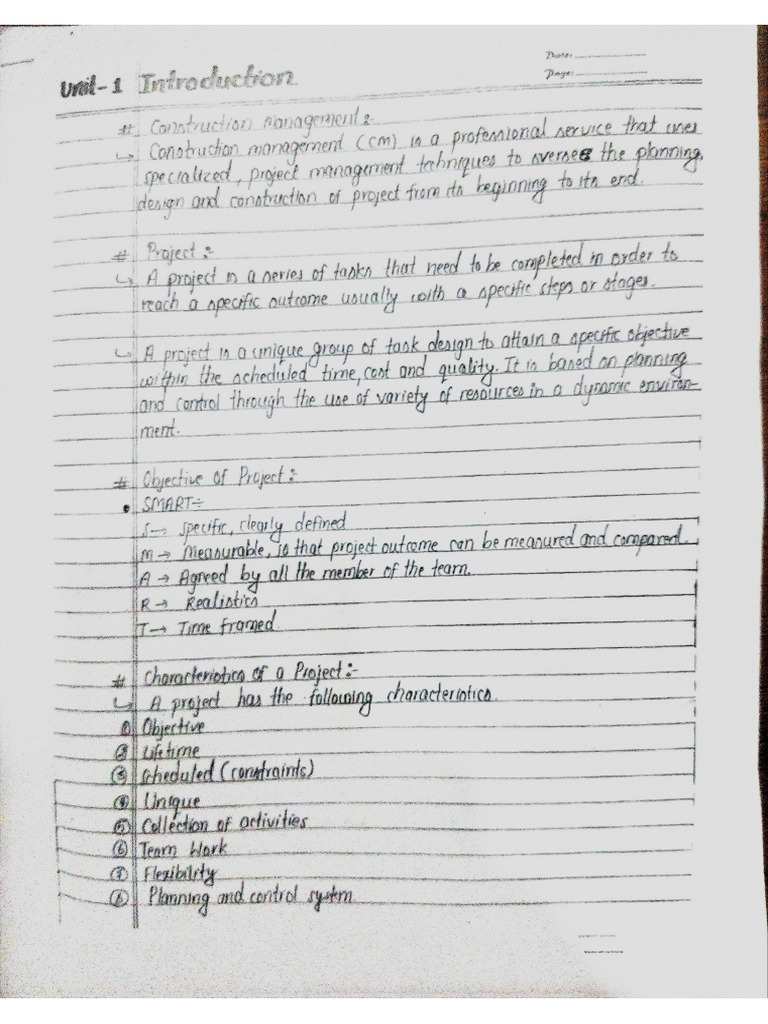 Date:
Page:
Unit-1 Introduction
# Construction Management:-
↳ Construction management (CM) is a professional service that uses
specialized, project management techniques to oversee the planning,
design and construction of project from its beginning to its end.
# Project:-
↳ A project is a series of tasks that need to be completed in order to
reach a specific outcome usually with a specific steps or stages.
↳ A project is a unique group of task design to attain a specific objective
within the scheduled time, cost and quality. It is based on planning
and control through the use of variety of resources in a dynamic environ-
ment.
# Objective of Project:-
• SMART:-
S→ specific, clearly defined
M→ Measurable, so that project outcome can be measured and compared.
A→ Agreed by all the member of the team.
R→ Realistics
T→ Time framed
# Characteristics of a Project:-
↳ A project has the following characteristics.
① Objective
② Lifetime
③ Scheduled (constraints)
④ Unique
⑤ Collection of activities
⑥ Team Work
⑦ Flexibility
⑧ Planning and control system